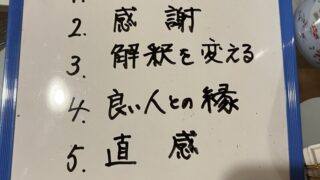 2. 感謝
3. 解釈を変える
4. 良い人との縁
5. 直感